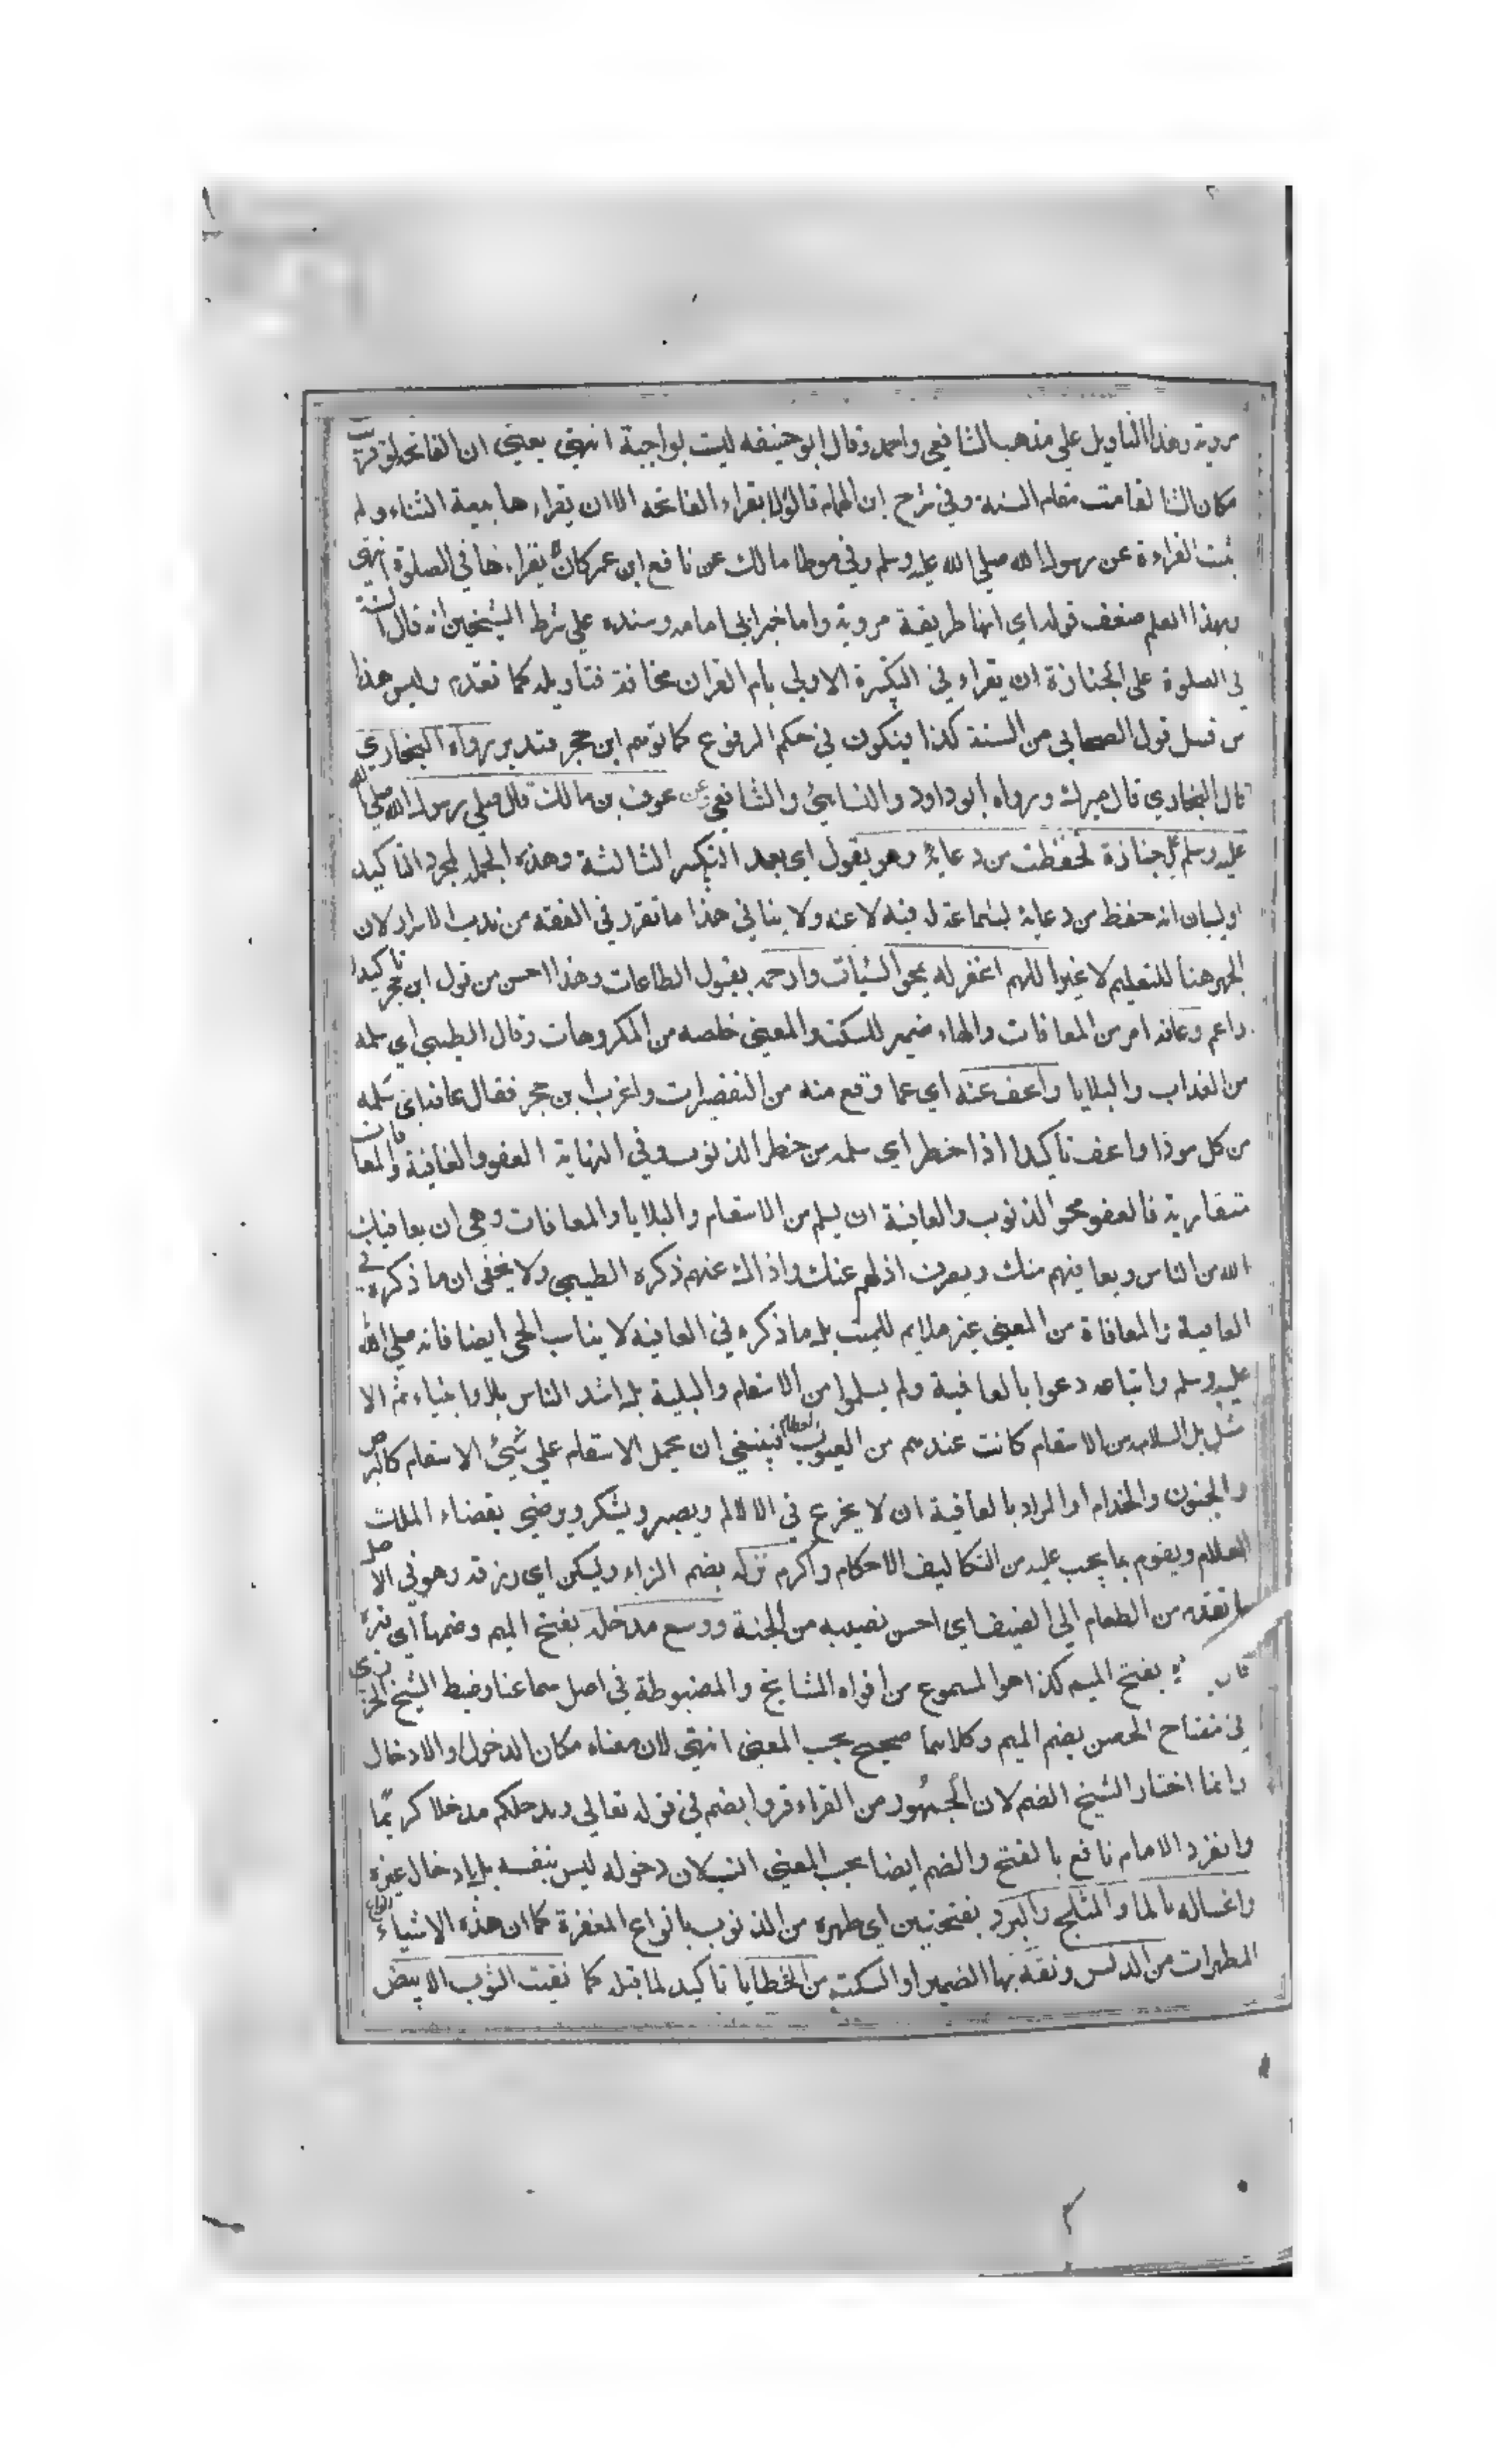 مروية وهذا التاويل على مذهب الشافعي واحمد وقال ابو حنيفه ليست بواجبة انتهي يعني ان الفاتحة لو قرئت
مكان الثنا لقامت مقام السنة وفي شرح ابن الهمام قالوا لا يقراء الفاتحه الا ان يقراءها بنية الثناء ولم
تثبت القراءة عن رسول الله صلي الله عليه وسلم وفي موطا مالك عن نافع ابن عمر كان لا يقراء خا في الصلوة انتهي
وبهذا العلم ضعف قوله اي انها طريقة مروية واما خبر ابي امامه وسنده علي شرط الشيخين انه قال السنة
في الصلوة على الجنازة ان يقراء في التكبيرة الاولي بام القران مخافتة فتاويله كما تقدم وليس هذا
من قبيل قول الصحابي من السنة كذا فيكون في حكم المرفوع كما توهم ابن حجر فتدبر رواه البخاري
قال البخاري قال ميرك ورواه ابو داود والنسايئ والشافعي عن عوف بن مالك قال صلي رسول الله صلي الله
عليه وسلم علي جنازة فحفظت من دعايه وهو يقول اي بعد التكبير الثالثة وهذه الجمل لمجرد التاكيد
او لبيان انه حفظ من دعايه بسماعه له فيه لا عنه ولا ينافي هذا ما تقرر في الفقه من ندب الاسرار لان
الجهر هنا للتعليم لا غير اللهم اغفر له بمحو السيأت وارحمه بقبول الطاعات وهذا احسن من قول ابن حجر تاكيدا
او اعم وعافه امر من المعافات والهاء ضمير للسكت والمعني خلصه من المكروهات وقال الطيبي اي سلمه
من العذاب والبلايا واعف عنه اي عما وقع منه من التقصيرات واغرب ابن حجر فقال عافه اي سلمه
من كل موذا واعف تاكيدا اذا خطر اي سلمه من خطر الذنوب وفي النهاية العفو والعافية والمعافات
متقاربة فالعفو محو الذنوب والعافية ان يسلم من الاسقام والبلايا والمعافات وهي ان يعافيك
الله من الناس ويعافيهم منك ويصرف اذاهم عنك واذاك عنهم ذكره الطيبي ولا يخفى ان ما ذكره في
العافية والمعافاة من المعني غير ملايم للميت بل ما ذكره في العافيه لا يناسب الحي ايضا فانه صلي الله
عليه وسلم واتباعه دعوا بالعافية ولم يسلموا من الاسقام والبلية بل اشد الناس بلاء الانبياء ثم الا
مثل بل السلامه من الاسقام كانت عندهم من العيوب العظام فينبغي ان يحمل الاسقام علي سيئ الاسقام كالبرص
والجنون والجذام او المراد بالعافية ان لا يجزع في الالالم ويصبر ويشكر ويرضي بقضاء الملك
العلام ويقوم بما يجب عليه من التكاليف الاحكام واكرم نزله بضم الزاء ويسكن اي رزقه وهو في الاصل
ما نقدمه من الطعام الي الضيف اي احسن نصيبه من الجنة ووسع مدخله بفتح الميم وضمها اي قبره
قال بفتح الميم كذا هو المسموع من افواه المشايخ والمضبوطة في اصل سماعنا وضبط الشيخ الجزري
في مفتاح الحصن بضم الميم وكلاهما صحيح بحسب المعني انتهي لان معناه مكان الدخول والادخال
وانما اختار الشيخ الضم لان الجمهور من القراء قروا بضم في قوله تعالي وندخلكم مدخلا كريما
وانفرد الامام نافع بالفتح والضم ايضا بحسب المعني انسب لان دخوله ليس بنفسه بل بادخال غيره
واغسله بالماء والثلج والبرد بفتحتين اي طهره من الذنوب بانواع المغفرة كما ان هذه الاشياء انواع
المطهرات من الدنس ونقه بها الضمير او السكته من الخطايا تاكيد لما قبله كما نقيت الثوب الابيض